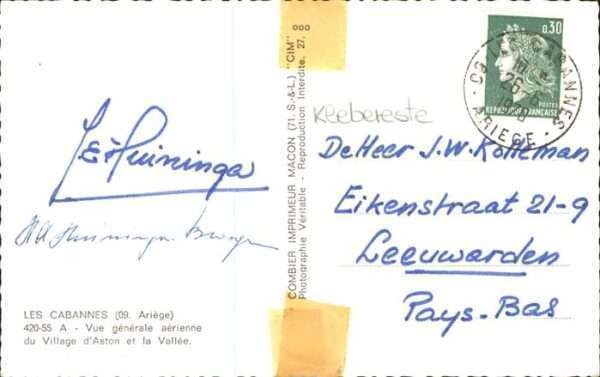 Huininga
Huininga
LES CABANNES (09. Ariège)
420-55 A - Vue générale aérienne
du Village d'Aston et la Vallée.
COMBIER IMPRIMEUR MACON (71. S.-&-L.) "CIM"
Photographie Véritable - Reproduction Interdite. 27.
Klebereste
0,30
POSTES
REPUBLIQUE FRANÇAISE
09 LES CABANNES
26
ARIEGE
De Heer J.W. Kolteman
Eikenstraat 21-9
Leeuwarden
Pays-Bas